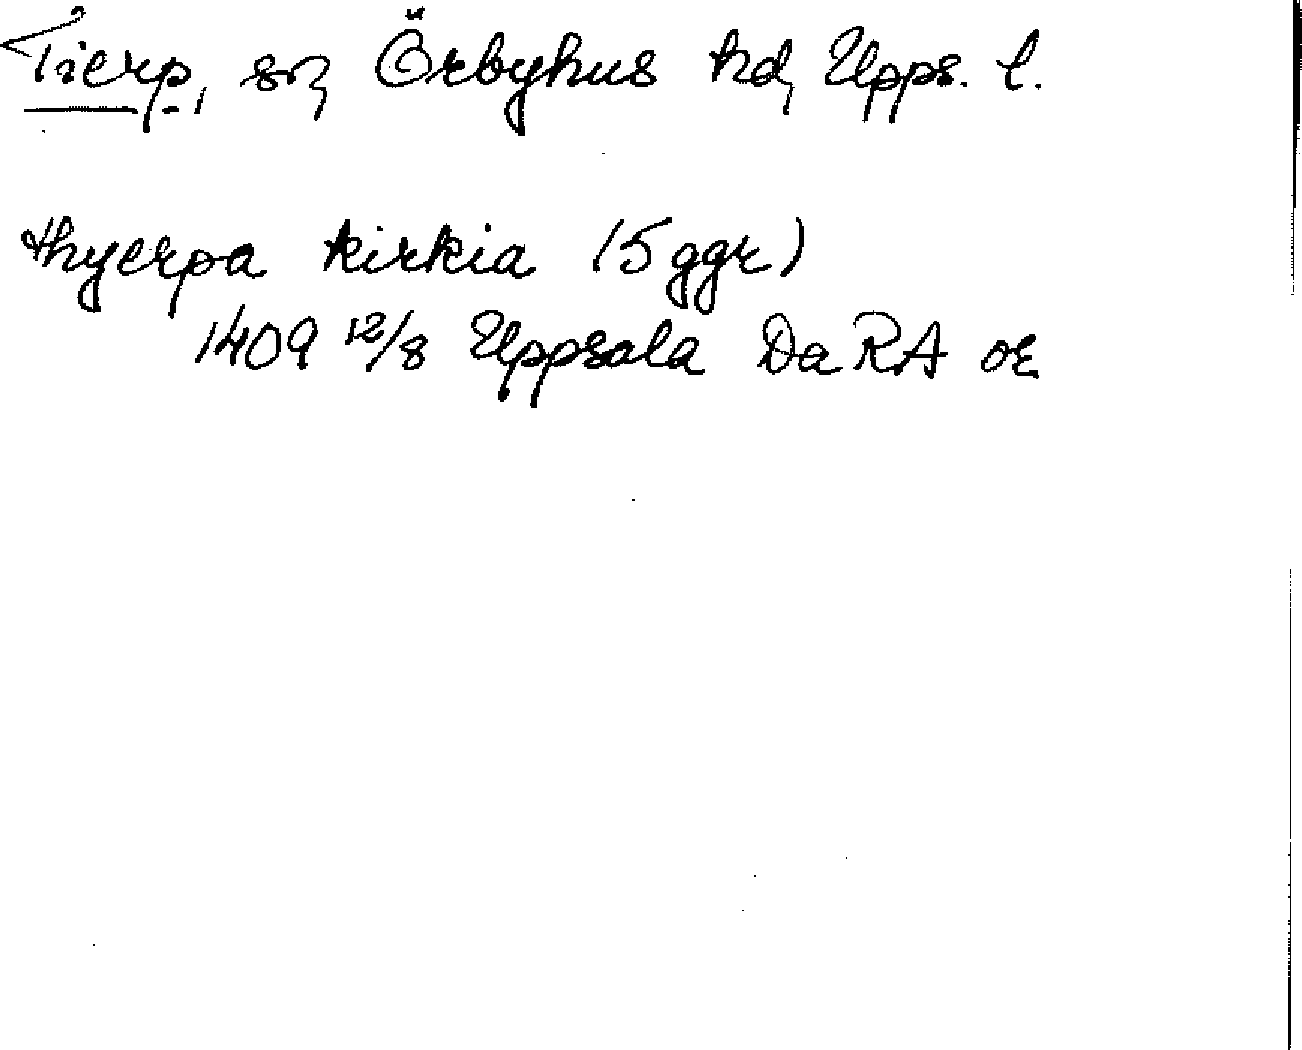 Tierp, sn, Örbyhus hd, Upps. l.
thyerpa kirkia (5 ggr)
1409 12/8 Uppsala DaRA or